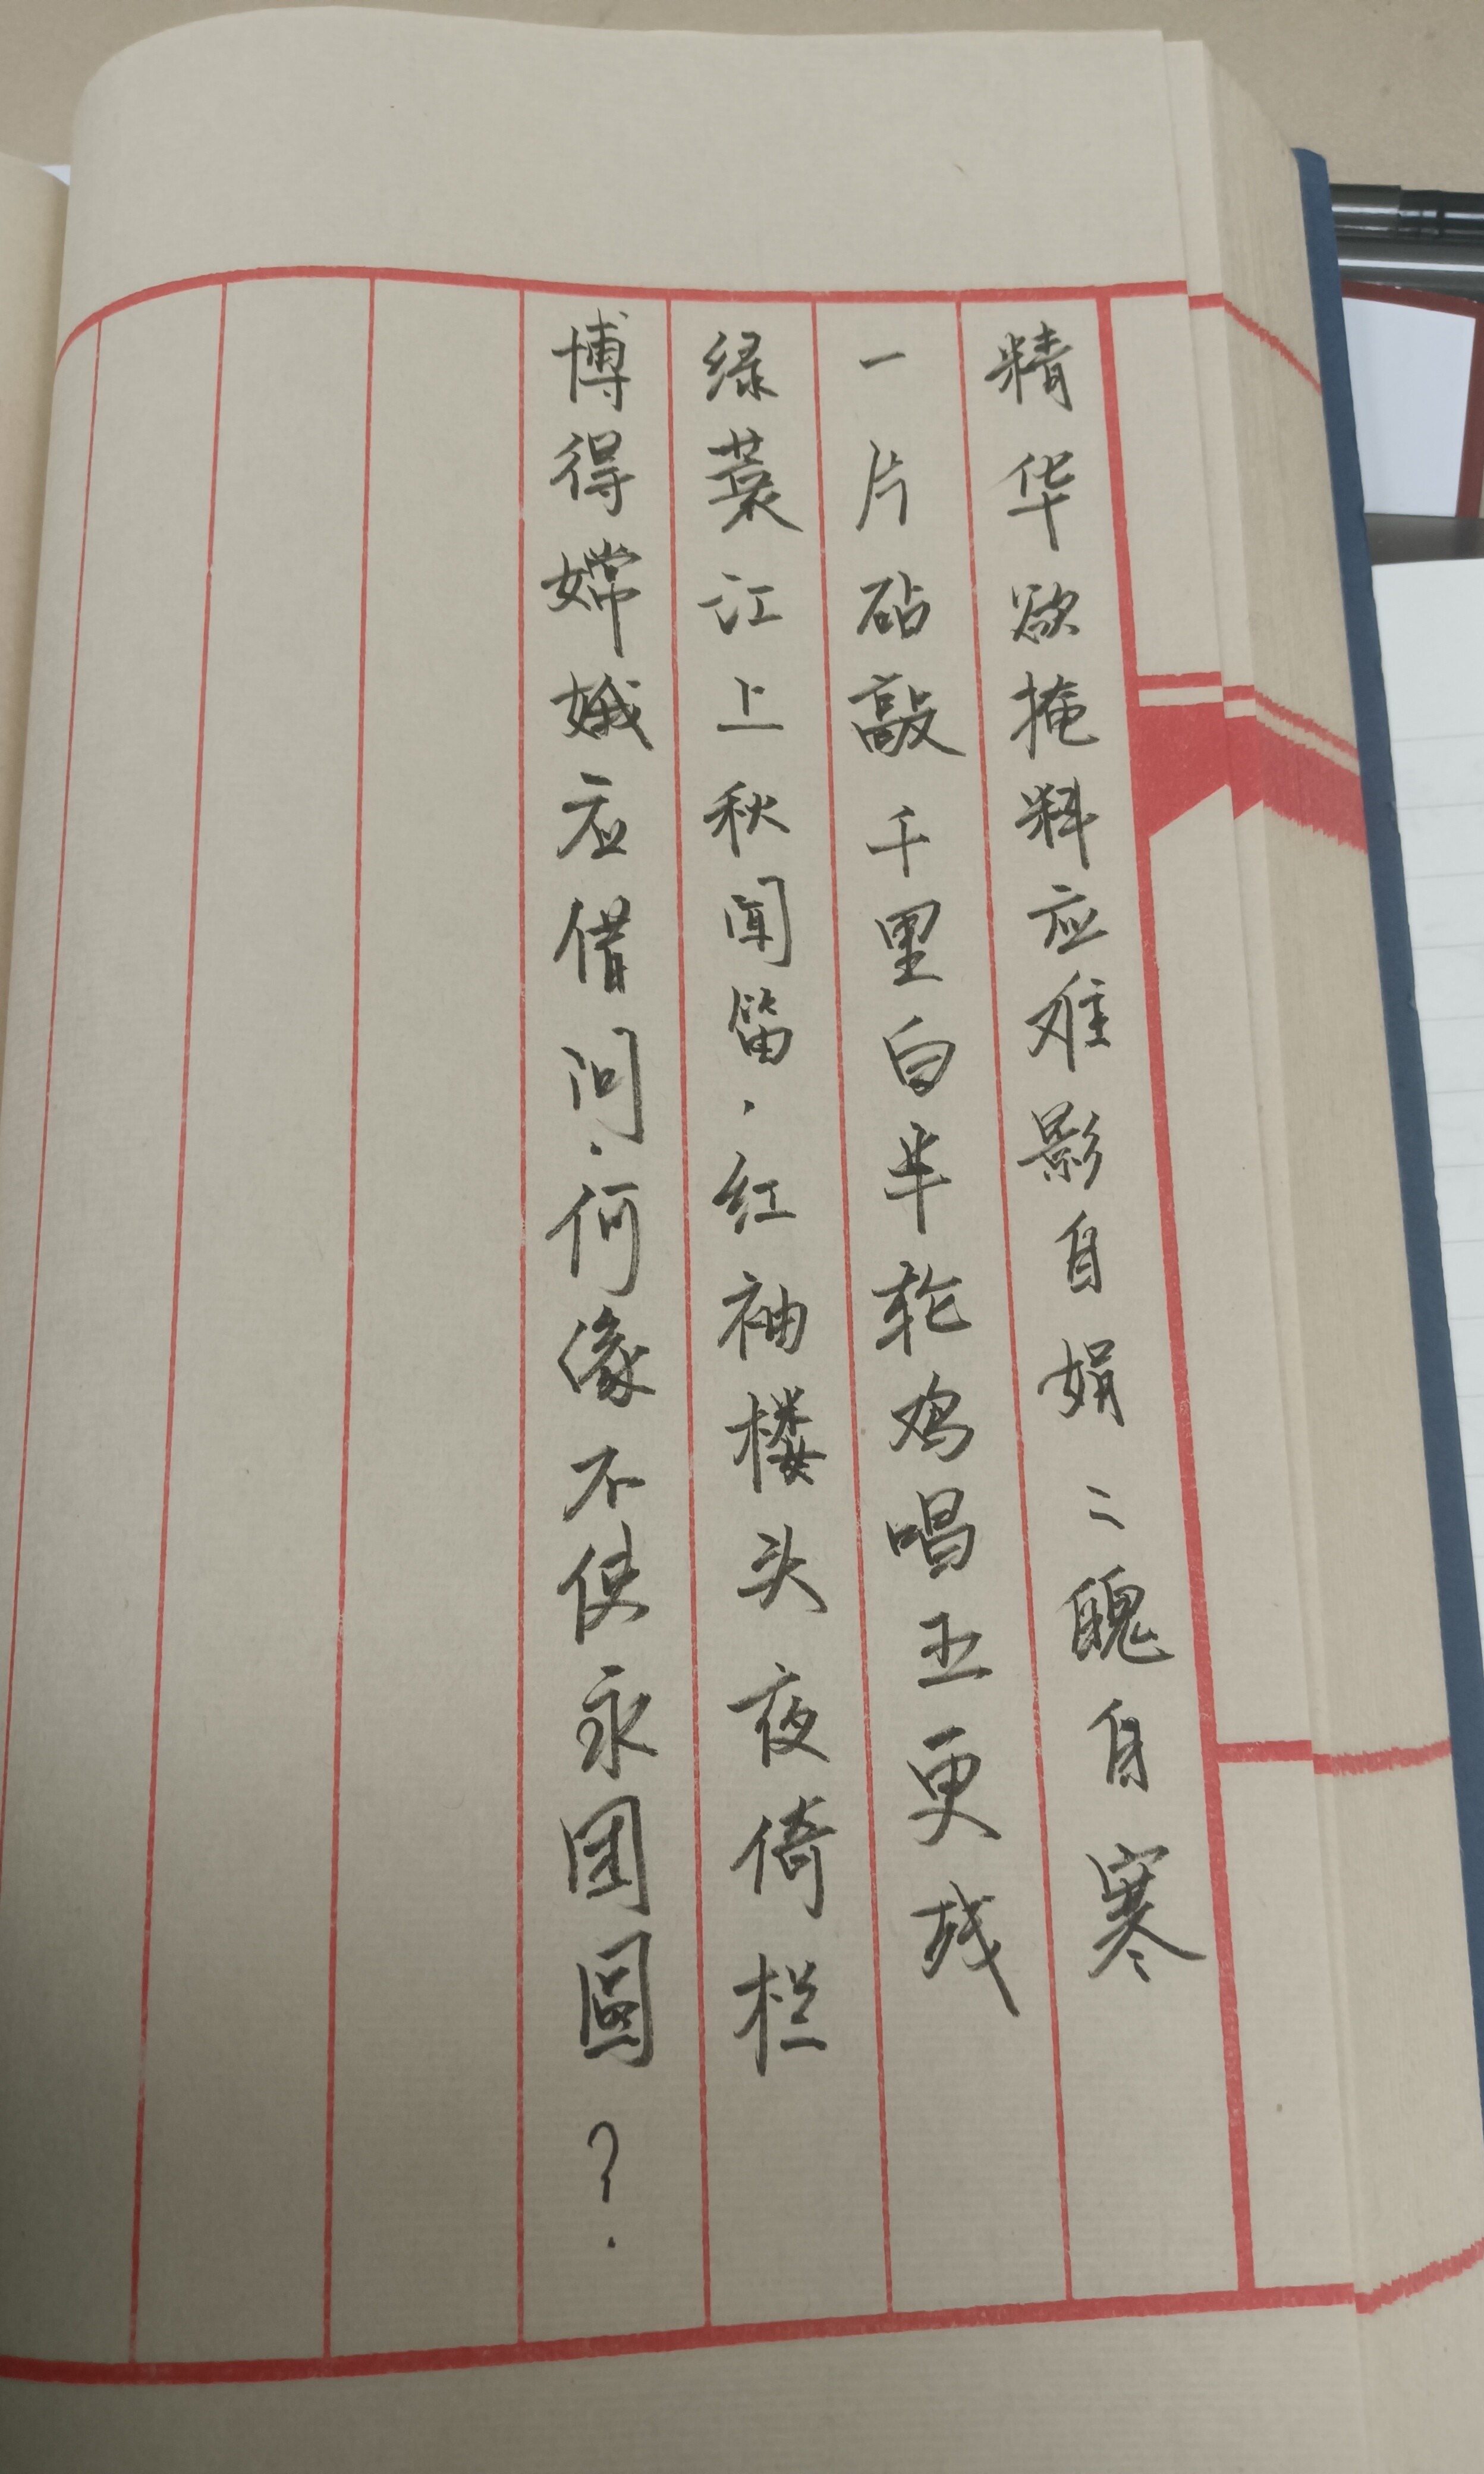 精华欲掩料应难影自娟〻魄自寒
一片砧敲千里白半轮鸡唱五更残
绿蓑江上秋闻笛．红袖楼头夜倚栏
博得嫦娥应借问．何缘不使永团圆？